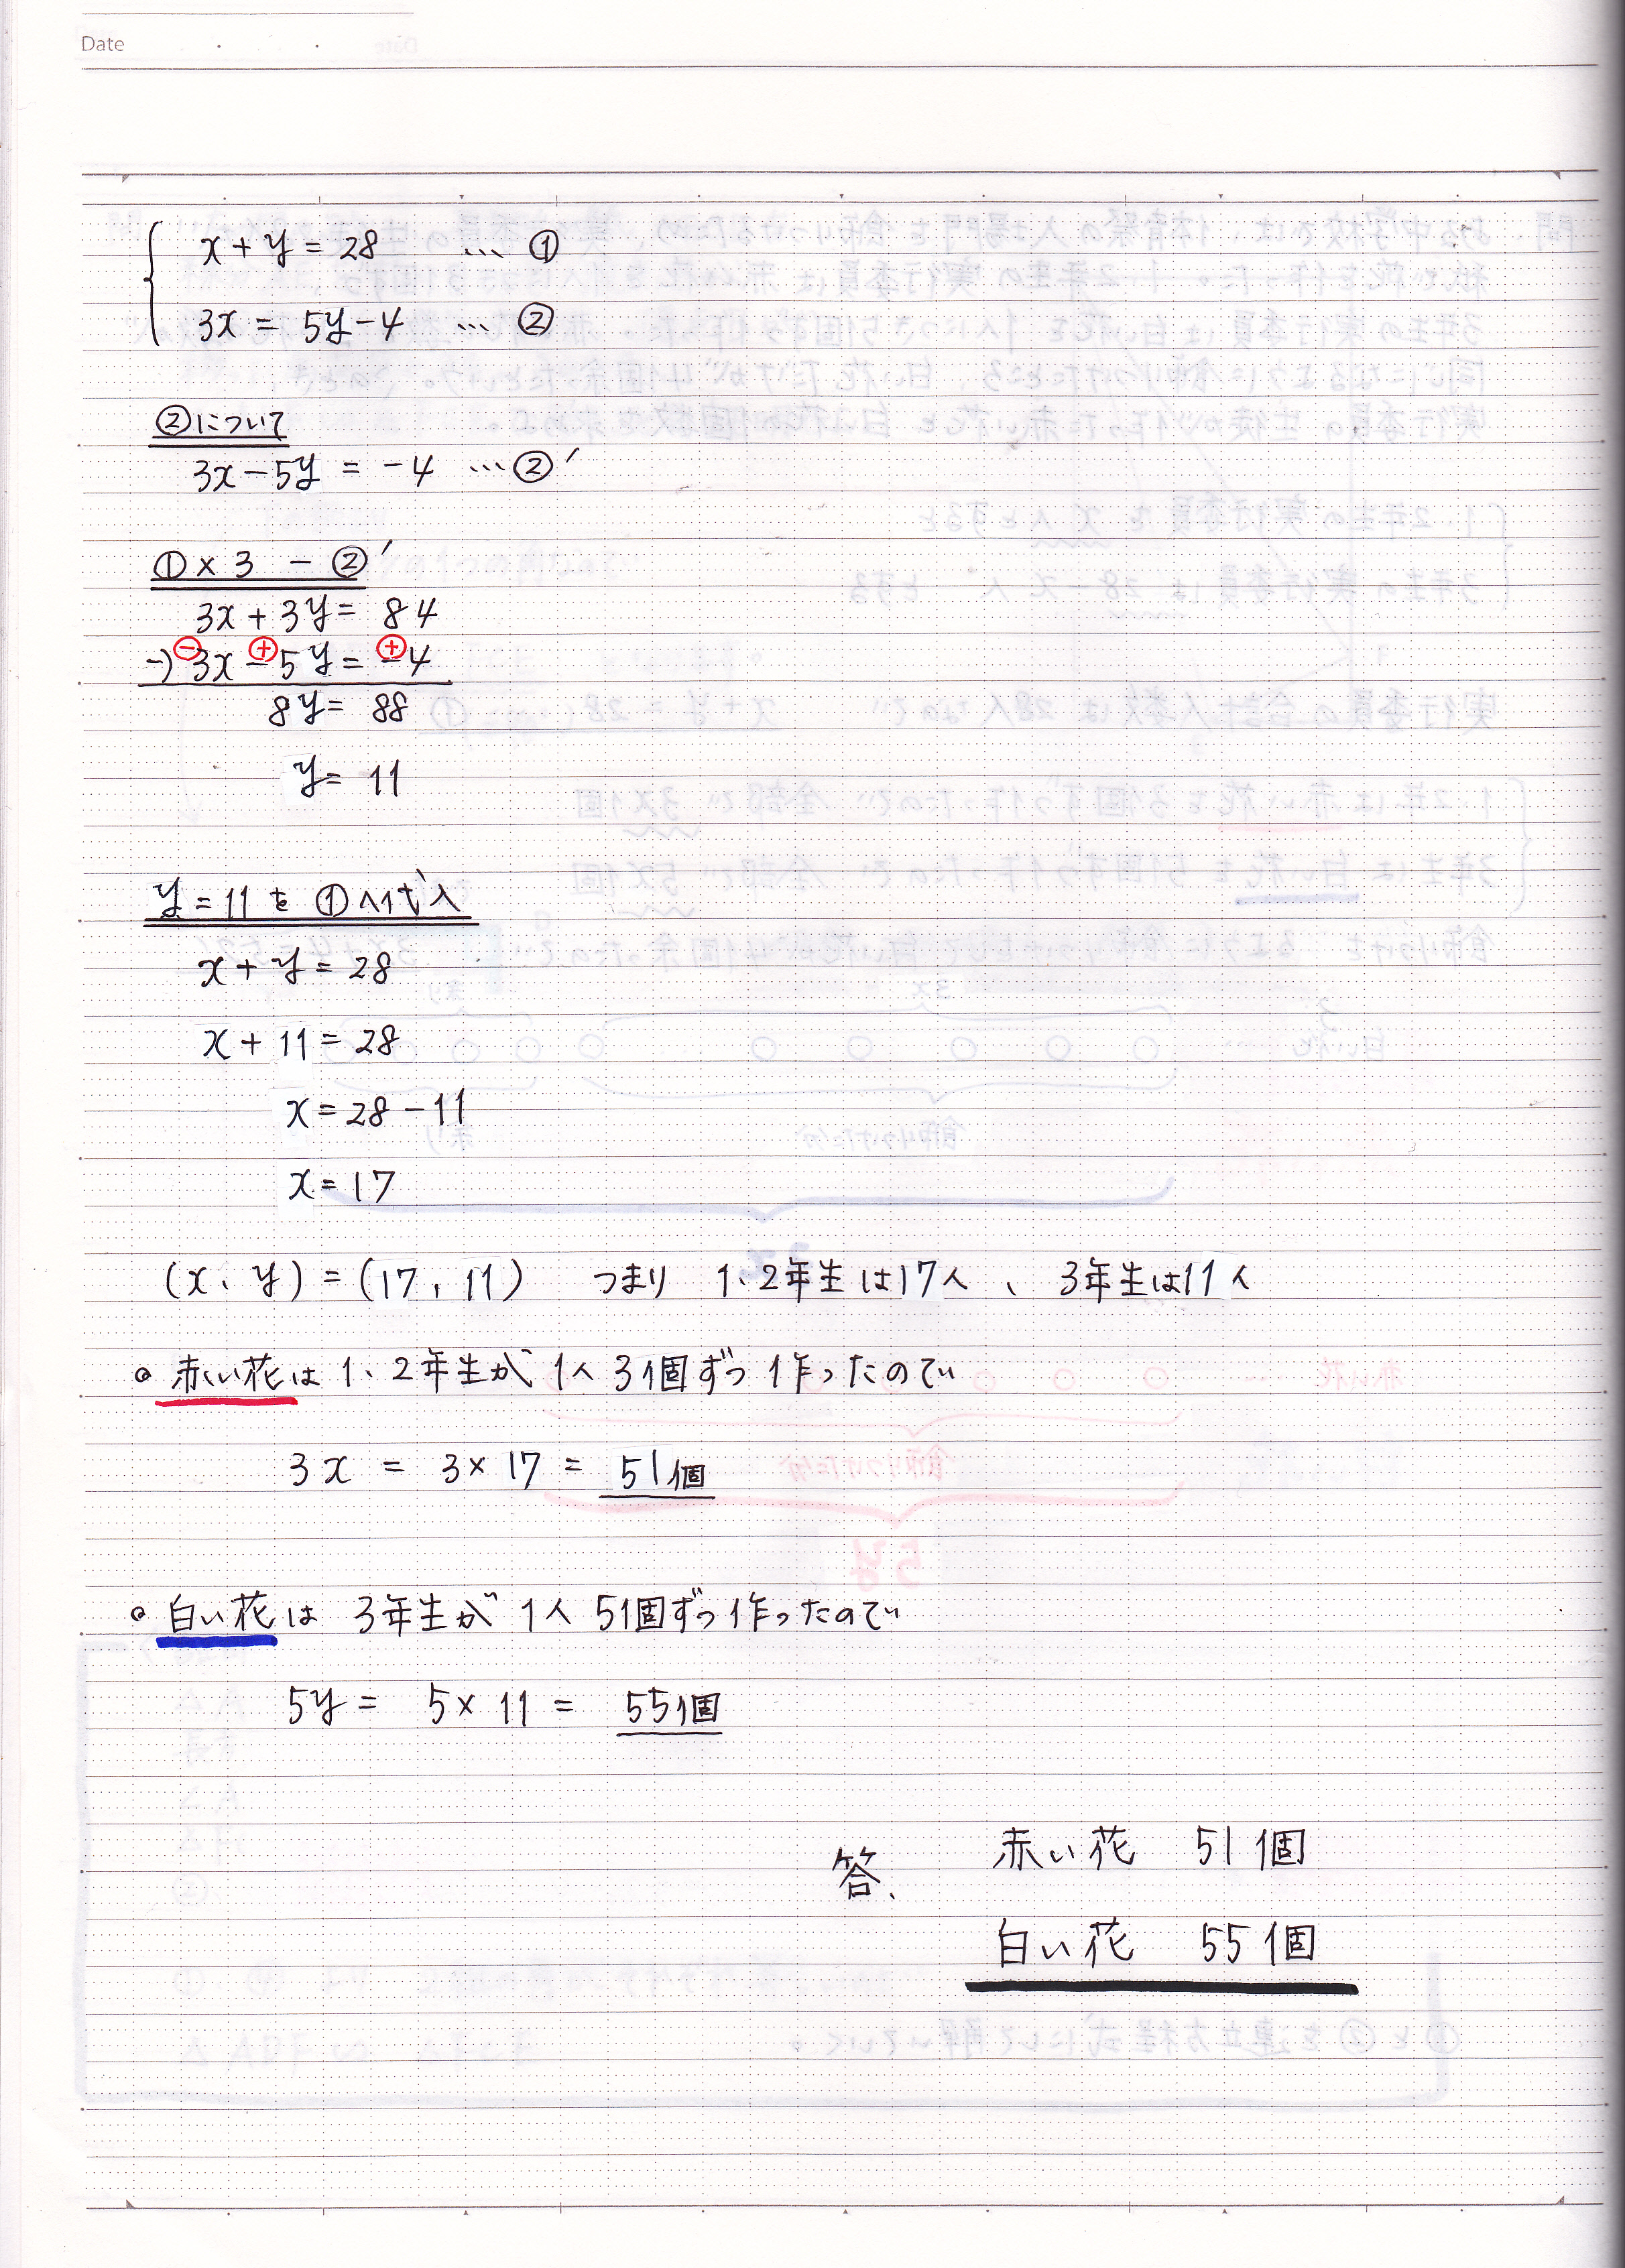 Date
x + y = 28 … ①
3x = 5y-4 … ②
②について
3x-5y = -4 …②′
①×3 - ②′
3x+3y= 84
⊖ ⊕ ⊕
-) 3x-5y=-4
8y= 88
y= 11
y=11を①へ代入
x+y=28
x+11=28
x=28-11
x=17
(x、y)=(17, 11) つまり 1、2年生は17人、3年生は11人
。赤い花は1、2年生が1人3個ずつ作ったので
3x = 3×17 = 51個
。白い花は 3年生が1人5個ずつ作ったので
5y = 5×11 = 55個
答、
赤い花 51個
白い花 55個